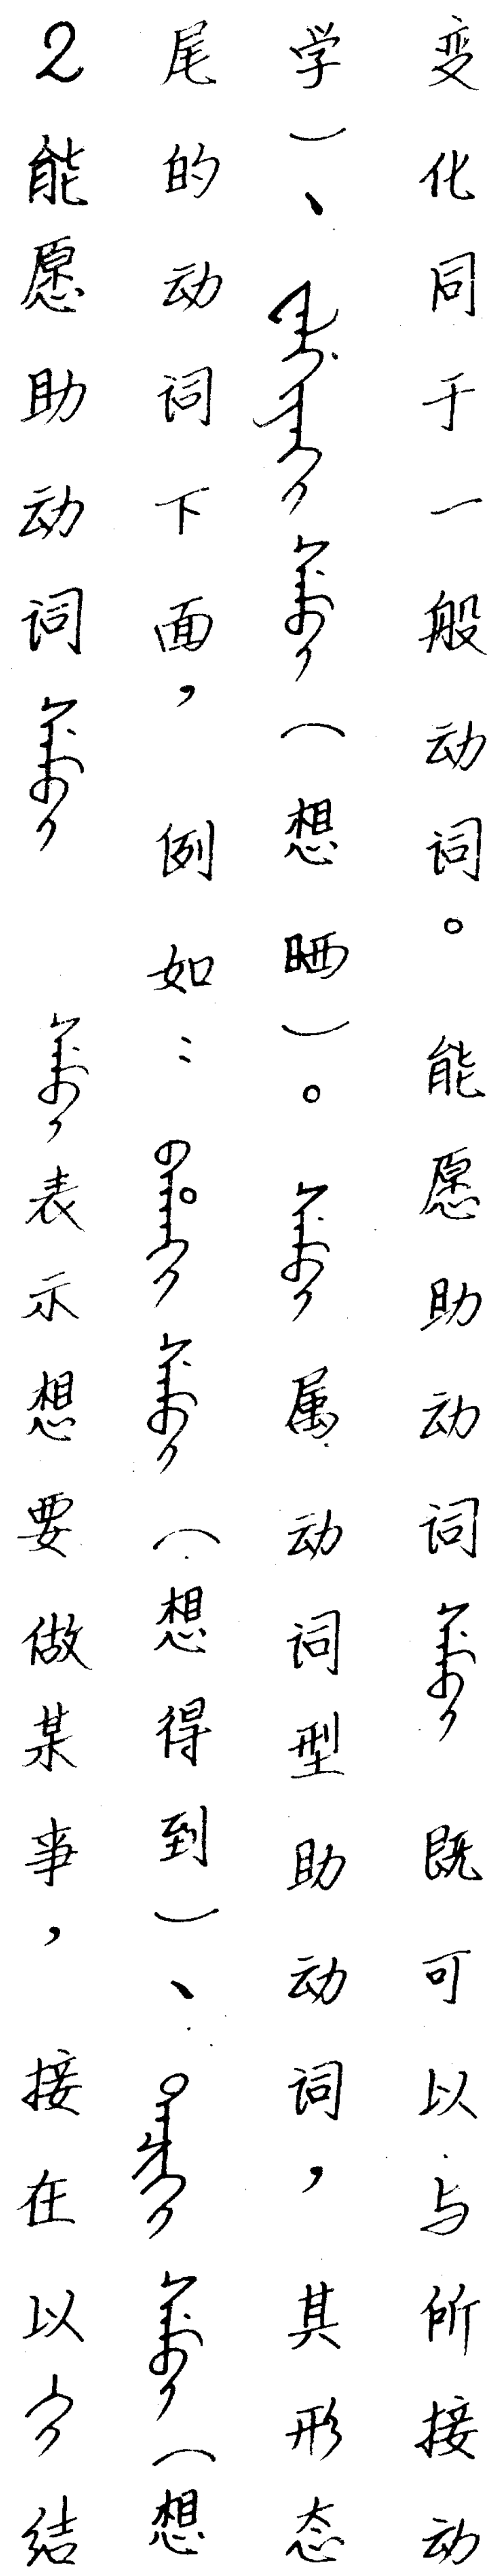 2能愿助动词ᠰᡝᠮᠪᡳ ᠰᡝᠮᠪᡳ表示想要做某事，接在以ᡴᡳ结
尾的动词下面，例如：ᠪᠠᡥᠠᡴᡳ ᠰᡝᠮᠪᡳ（想得到）、ᡨᠠᠴᡳᡴᡳ ᠰᡝᠮᠪᡳ（想
学）、ᠰᡝᠮᠪᡳ（想晒）。ᠰᡝᠮᠪᡳ属动词型助动词，其形态
变化同于一般动词。能愿助动词ᠰᡝᠮᠪᡳ既可以与所接动